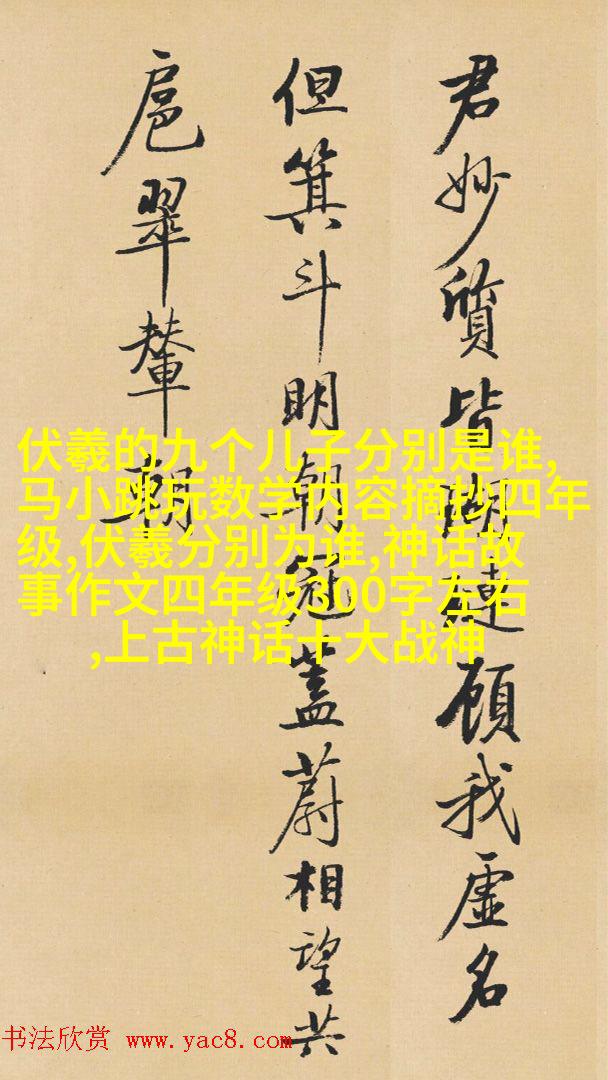 君妙質皆瑚璉顧我虛名
但箕斗明朝冠蓋蔚相望共
扈翠輦朝
伏羲的九个儿子分别是谁,
马小跳玩数学内容摘抄四年
级,伏羲分别为谁,神话故
事作文四年级300字左右
,上古神话十大战神
书法欣赏 www.yac8.com